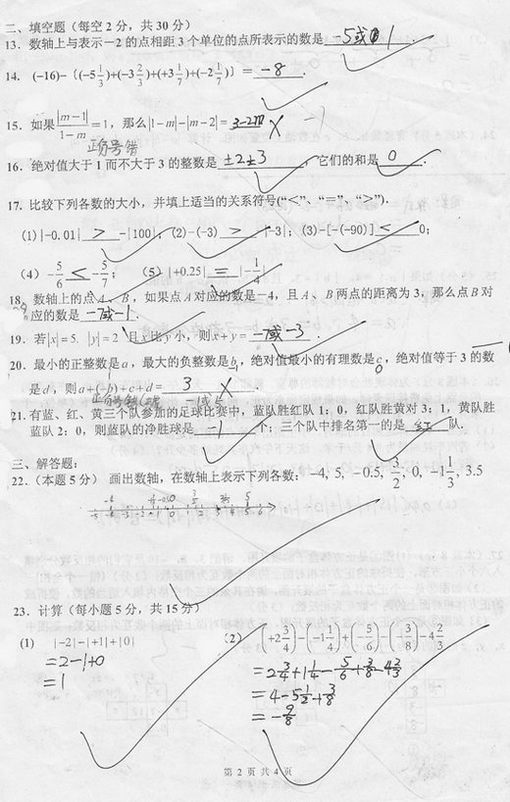 二、填空题（每空2分，共30分）
13. 数轴上与表示－2的点相距3个单位的点所表示的数是 -5或 1 .
14. (-16)-〔(-5 1/3)+(-3 2/3)+(+3 1/7)+(-2 1/7)〕= -8 .
15. 如果 |m-1|/(1-m) =1，那么|1-m|-|m-2|= 3-2m
正负号错
16. 绝对值大于1而不大于3的整数是 ±2±3 ，它们的和是 0 .
17. 比较下列各数的大小，并填上适当的关系符号(“<”、“=”、“>”).
(1)|-0.01| > -|100|；(2)-(-3) |-3|；(3)-[-(-90)] < 0；
(4) -5/6 < -5/7；(5) |+0.25| = |-1/4|
18、数轴上的点A、B，如果点A对应的数是－4，且A、B两点的距离为3，那么点B对
应的数是 -7或-1 .
19. 若|x|=5，|y|=2，且x比y小，则x+y= -7或-3 .
20. 最小的正整数是a，最大的负整数是b，绝对值最小的有理数是c，绝对值等于3的数
1 -1 0
是d，则a+(-b)+c+d= 3
正负号错
21. 有蓝、红、黄三个队参加的足球比赛中，蓝队胜红队1：0，红队胜黄对3：1，黄队胜
蓝队2：0，则蓝队的净胜球是 -1 个；三个队中排名第一的是 红 队.
三、解答题：
22. （本题5分） 画出数轴，在数轴上表示下列各数：－4, 5, －0.5, 3/2, 0, －1 1/3, 3.5
23. 计算（每小题5分，共15分）
(1) |-2|-|+1|+|0|
=2-1+0
=1
(2) (+2 3/4)-(-1 1/4)+(-5/6)-(-3/8)-4 2/3
=2 3/4+1 1/4-5/6+3/8-4 2/3
=4-5 1/2+3/8
=-9/8
第 2 页 共 4 页